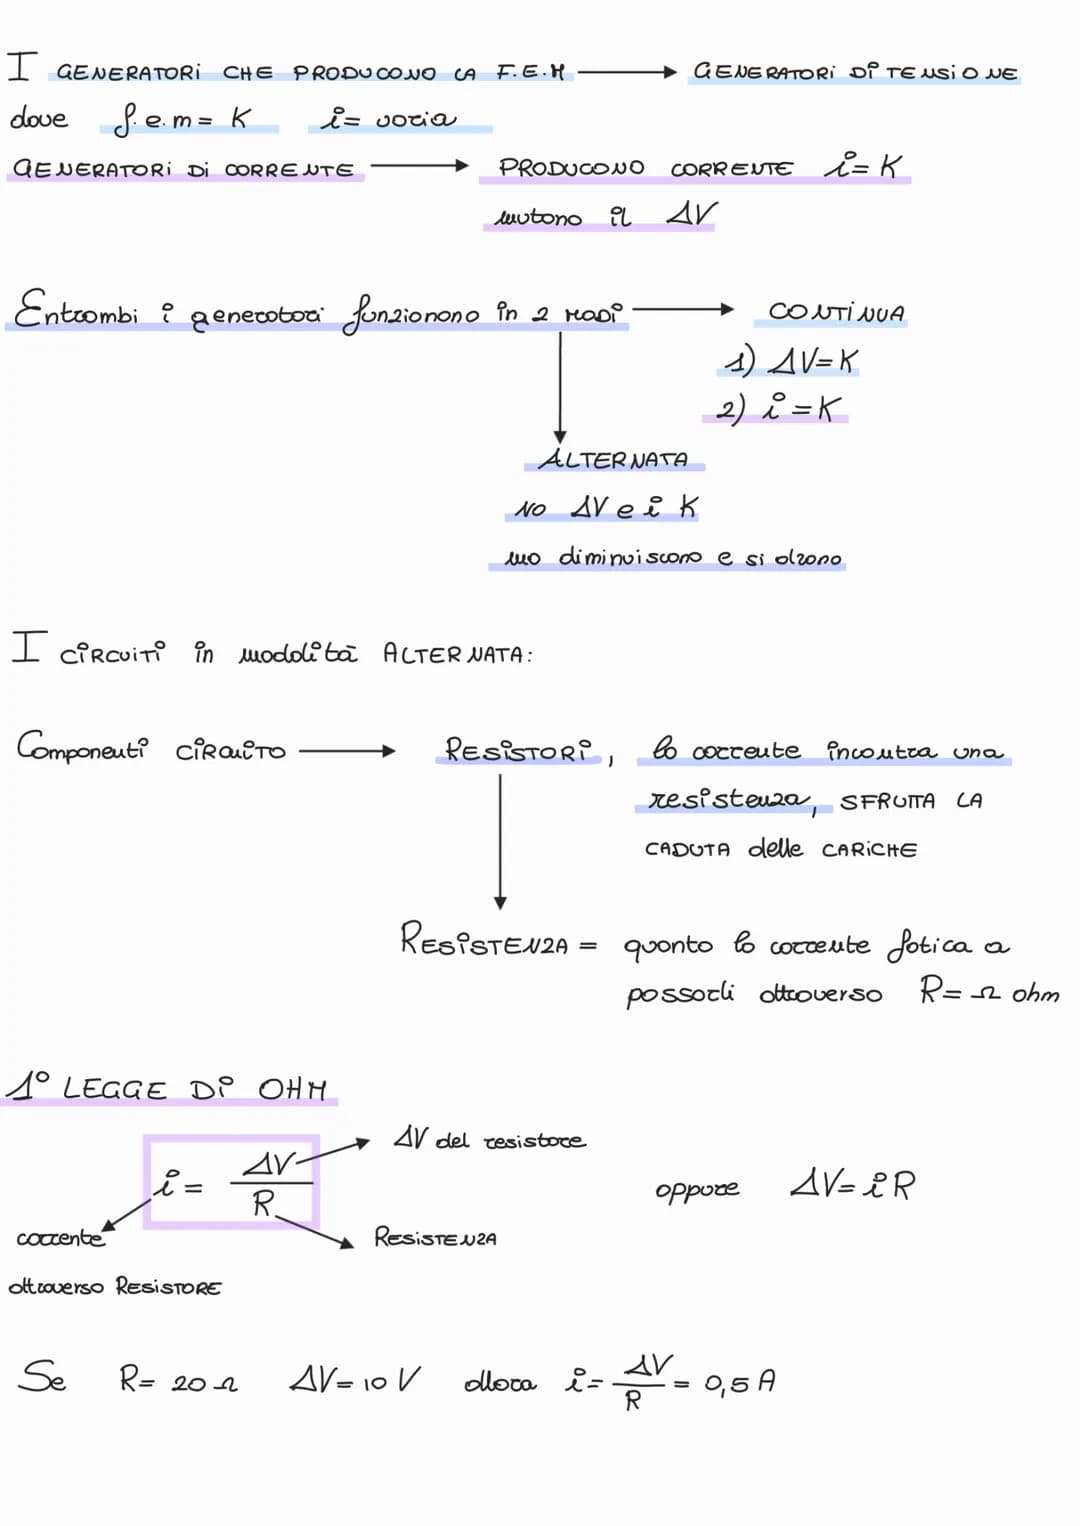 I GENERATORI CHE PRODUCONO LA F.E.M → GENERATORI DI TENSIONE
dove f.e.m = K i = varia
GENERATORI DI CORRENTE → PRODUCONO CORRENTE i = K
mutano il ΔV
Entrambi i generatori funzionano in 2 MODI → CONTINUA
1) ΔV = K
2) i = K
ALTERNATA
NO ΔV e i K
ma diminuiscono e si alzano
I CIRCUITI in modalità ALTERNATA:
Componenti CIRCUITO → RESISTORI, la corrente incontra una
resistenza, SFRUTTA LA
CADUTA delle CARICHE
RESISTENZA = quanto la corrente fatica a
passarli attraverso R = Ω ohm
1° LEGGE DI OHM
ΔV del resistore
i = ΔV/R oppure ΔV = i R
corrente RESISTENZA
attraverso RESISTORE
Se R = 20 Ω ΔV = 10 V allora i = ΔV/R = 0,5 A